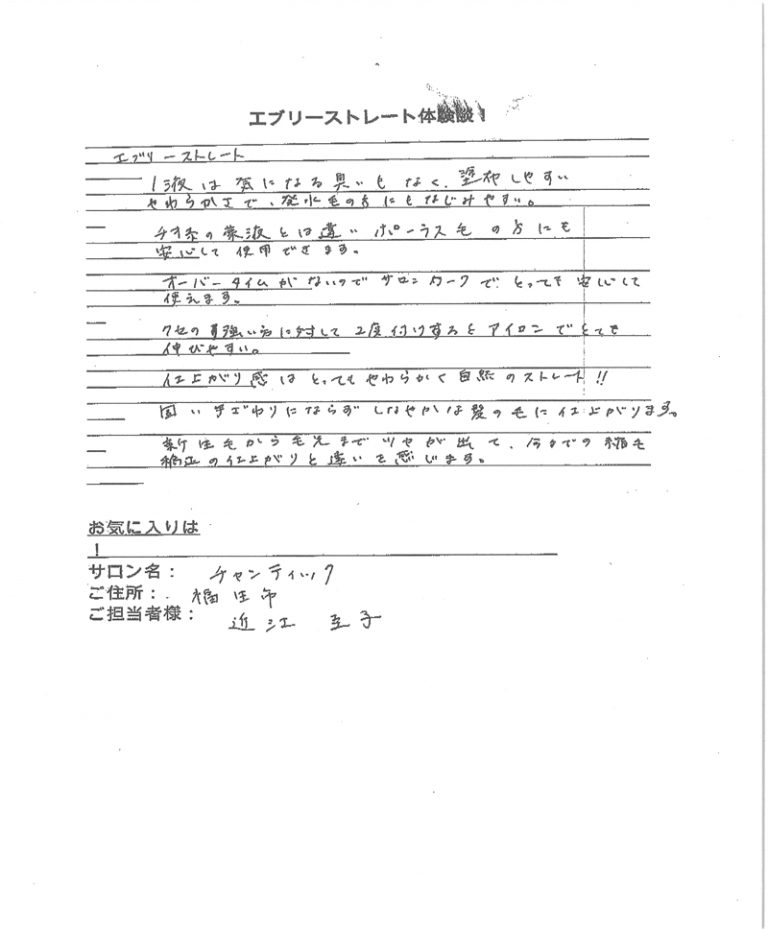 エブリーストレート体験談！
エブリーストレート
1液は気になる臭いもなく、塗布しやすい
やわらかさで、発水毛の方にもなじみやすい。
チオ系の薬液とは違い ポーラス毛の方にも
安心して使用できます。
オーバータイムがないのでサロンワークで、とっても安心して
使えます。
クセの強い方に対して2度付けするとアイロンでとても
伸びやすい。
仕上がり感はとってもやわらかく自然のストレート!!
固い手ざわりにならずしなやかな髪の毛に仕上がります。
新生毛から毛先までツヤが出て、今までの縮毛
矯正の仕上がりと違いを感じます。
お気に入りは
！
サロン名： チャンティック
ご住所：. 市
ご担当者様： 近江 子